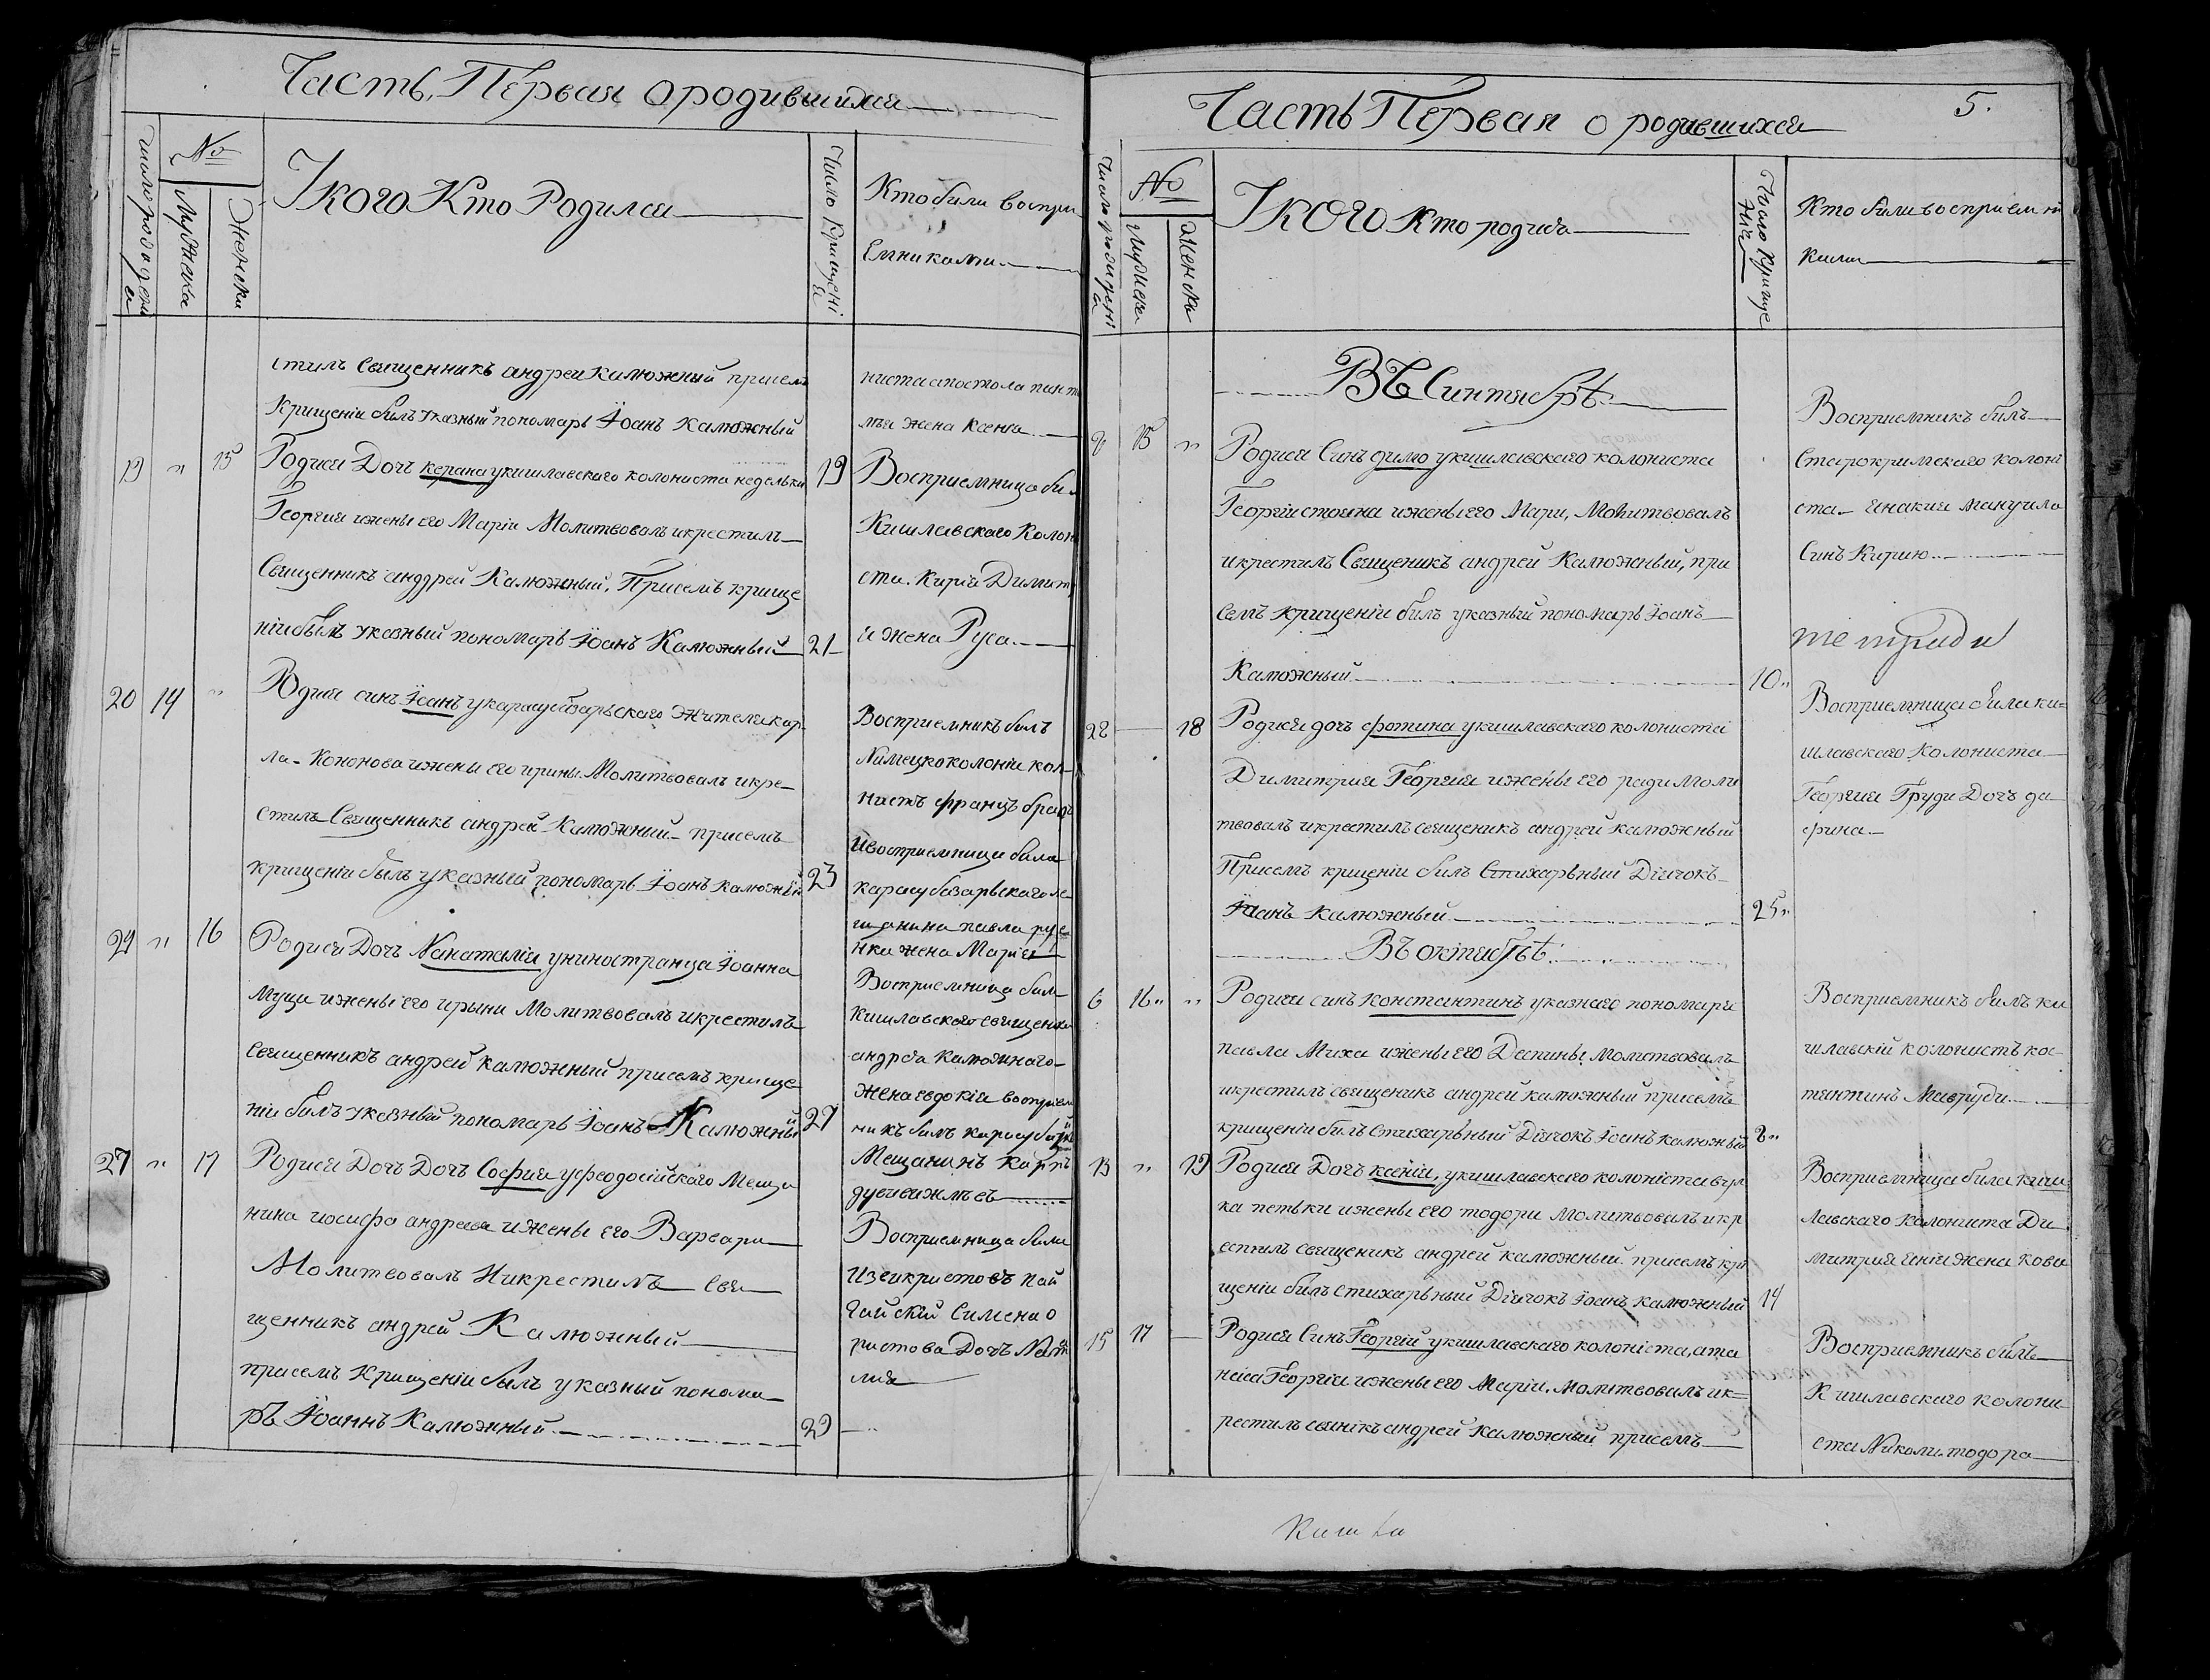 Часть Первая о родившихся
Число рождения
№
Мужеска
Женски
Укого Кто Родился
Число Крищенія
Кто били Воспри
емниками.
стилъ Священникъ андреи Калюжний присемъ
Крищеніи билъ указный пономарь Іоанъ Калюжный
ниста апостола пант
жена Ксенія
19 " 15 Родися Дочъ керана укишлавскаго колониста недельки 19
Георгия ижены его Маріи Молитвовалъ икрестилъ
Священникъ андрей Калюжный, Присемъ крище
ніи былъ указный пономарь Іоанъ Калюжный 21
Восприемница би
Кишлавскаго Колон
ста. Кирія Димит
и жена Руса.
20 14 " Родися синъ Іоанъ укарасубазарьскаго Жителя кар
ла Кононова ижены его ирины Молитвовалъ икре
стилъ Священникъ андрей Калюжный присемъ
крищеніи былъ указный пономарь Іоанъ Калюжный 23
Восприемникъ билъ
Нимецкоколоніи кол
нистъ францъ
Ивосприемница била
карасубазарьскаго ме
щанина павла рус
нка жена Марія
24 " 16 Родися Дочъ Nанаталіи униностранца Іоанна
Муци ижены его ирыни Молитвовалъ икрестилъ
Священникъ андрей калюжный присемъ крище
ніи билъ указный пономарь Іоанъ Калюжный 27
Восприемница била
Кишлавскаго священика
андрея Калюжнаго
жена евдокія восприем
никъ билъ карасубазар
Мещанинъ Карпъ
27 " 17 Родися Дочъ Дочъ София уфеодосійскаго Меща
нина иосифа андреева ижены его Варвары
Молитвовалъ Икрестилъ Свя
щенникъ андрей Калюжный
присемъ Крищеніи былъ указный понома
ръ Іоаннъ Калюжный 29
Восприемница била
Симена
ристова Дочъ Nат
лия
Часть Первая о родившихся 5.
Число рожденія
№
Мужеска
Женска
Укого Кто родисъ
Число Крищенія
Кто били восприемни
ками
Въ Синтябрѣ
8 15 " Родися Синъ димо укишлавскаго колониста
Георгія стояна ижены его Мари, Молитвовалъ
икрестилъ Священикъ андрей Калюжный, при
семъ крищеніи билъ указный пономарь Іоанъ
Калюжный 10"
Восприемникъ билъ
Старокримскаго колони
ста Янакия Манучила
Синъ Кирию
22 18 Родися дочъ фотина укишлавскаго колониста
Димитрия Георгия ижены его ради Моли
твовалъ икрестилъ священикъ андрей калюжный
Присемъ крищеніи билъ Стихарьный Діячокъ
Іоанъ Калюжный 25"
Восприемница била ки=
шлавскаго Колониста
Георгия Груди Дочъ да
фина
Въ октябрѣ
6 16" " Родися синъ Константинъ указнаго пономаря
павла Миха ижены его Деспины Молитвовалъ
икрестилъ священикъ андрей калюжный присемъ
крищеніи билъ стихарьный Діячокъ Іоанъ калюжный 8"
Восприемникъ билъ ки
шлавскій колонистъ кос
тянтинъ Мавруди
13 " 19 Родися Дочъ ксенія, укишлавскаго колоніста вул
ка петьки ижены его тодори Молитвовалъ икр
естилъ священикъ андрей калюжный присемъ кри
щеніи билъ стихарьный Діячокъ Іоанъ калюжный 14
Восприемница била киш
лавскаго Колониста Ди
митрия Янія жена Кова
15 17 Родися Синъ Георгій укишлавскаго колоніста, ата
наса Георгія ижены его Маріи. Молитвовалъ ик=
рестилъ свяникъ андрей Калюжный присемъ
Восприемникъ билъ
Кишлавскаго колони
ста Николи тодора